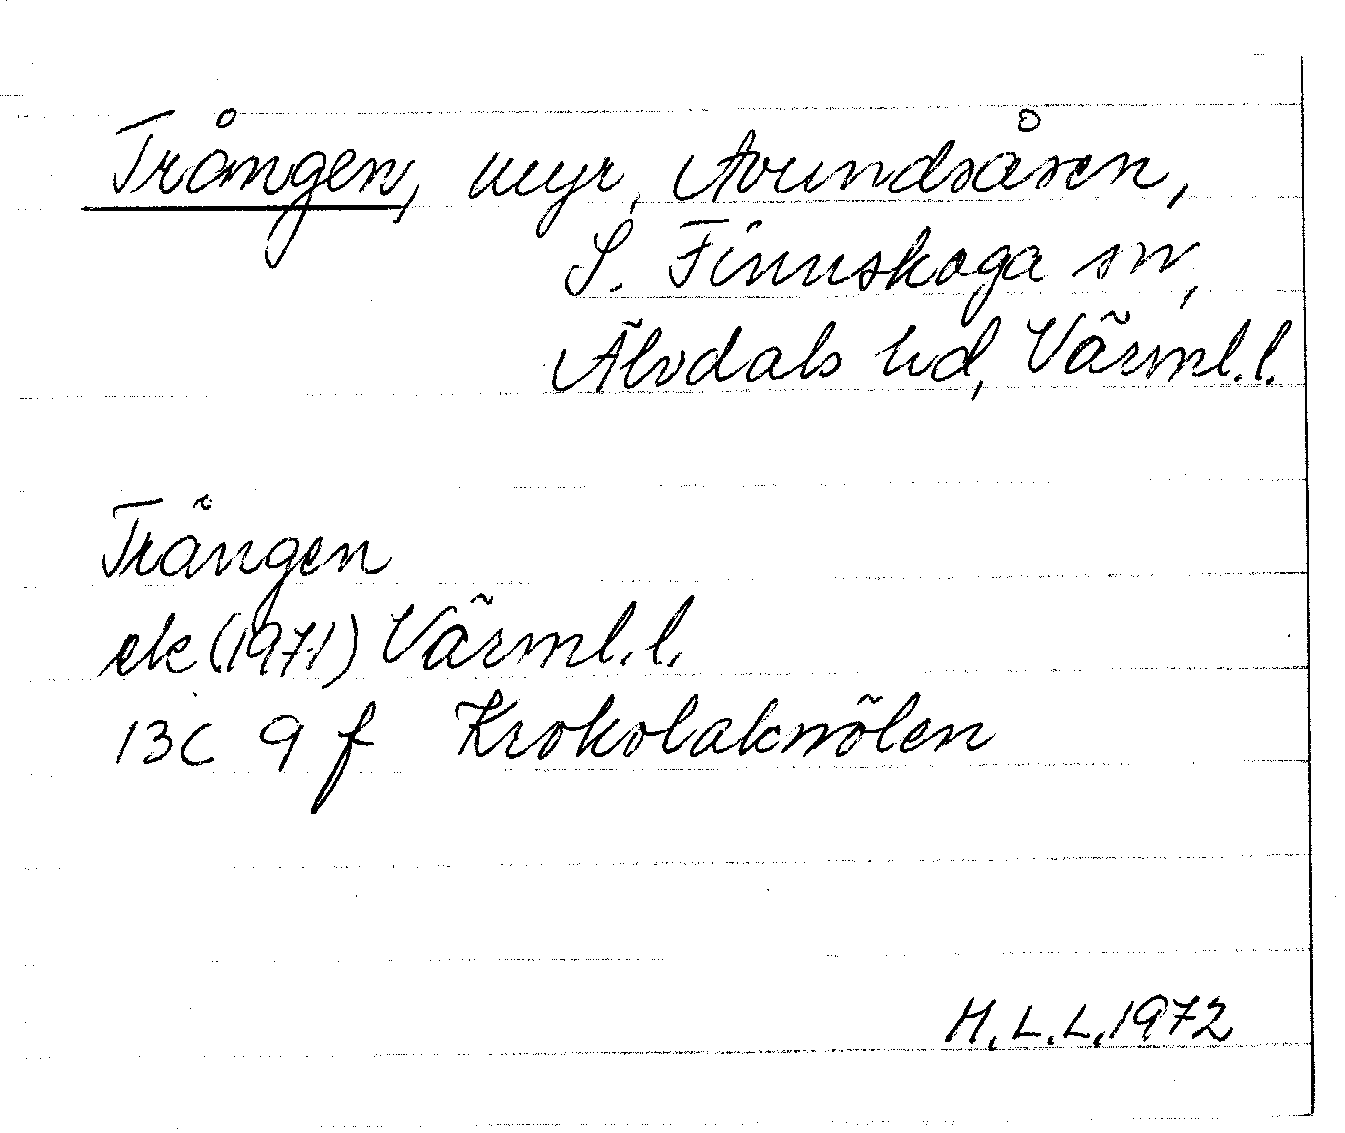 Trången, myr, Avundsåsen,
S. Finnskoga sn,
Älvdals hd, Värml.l.
Trången
ek (1971) Värml.l.
13C 9 f Krokolaknölen
H.L.L.1972